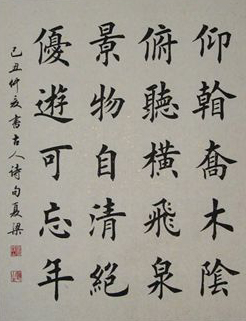 仰翰喬木陰
俯聽橫飛泉
景物自清絕
優遊可忘年
己丑仲夏書古人诗句夏梁